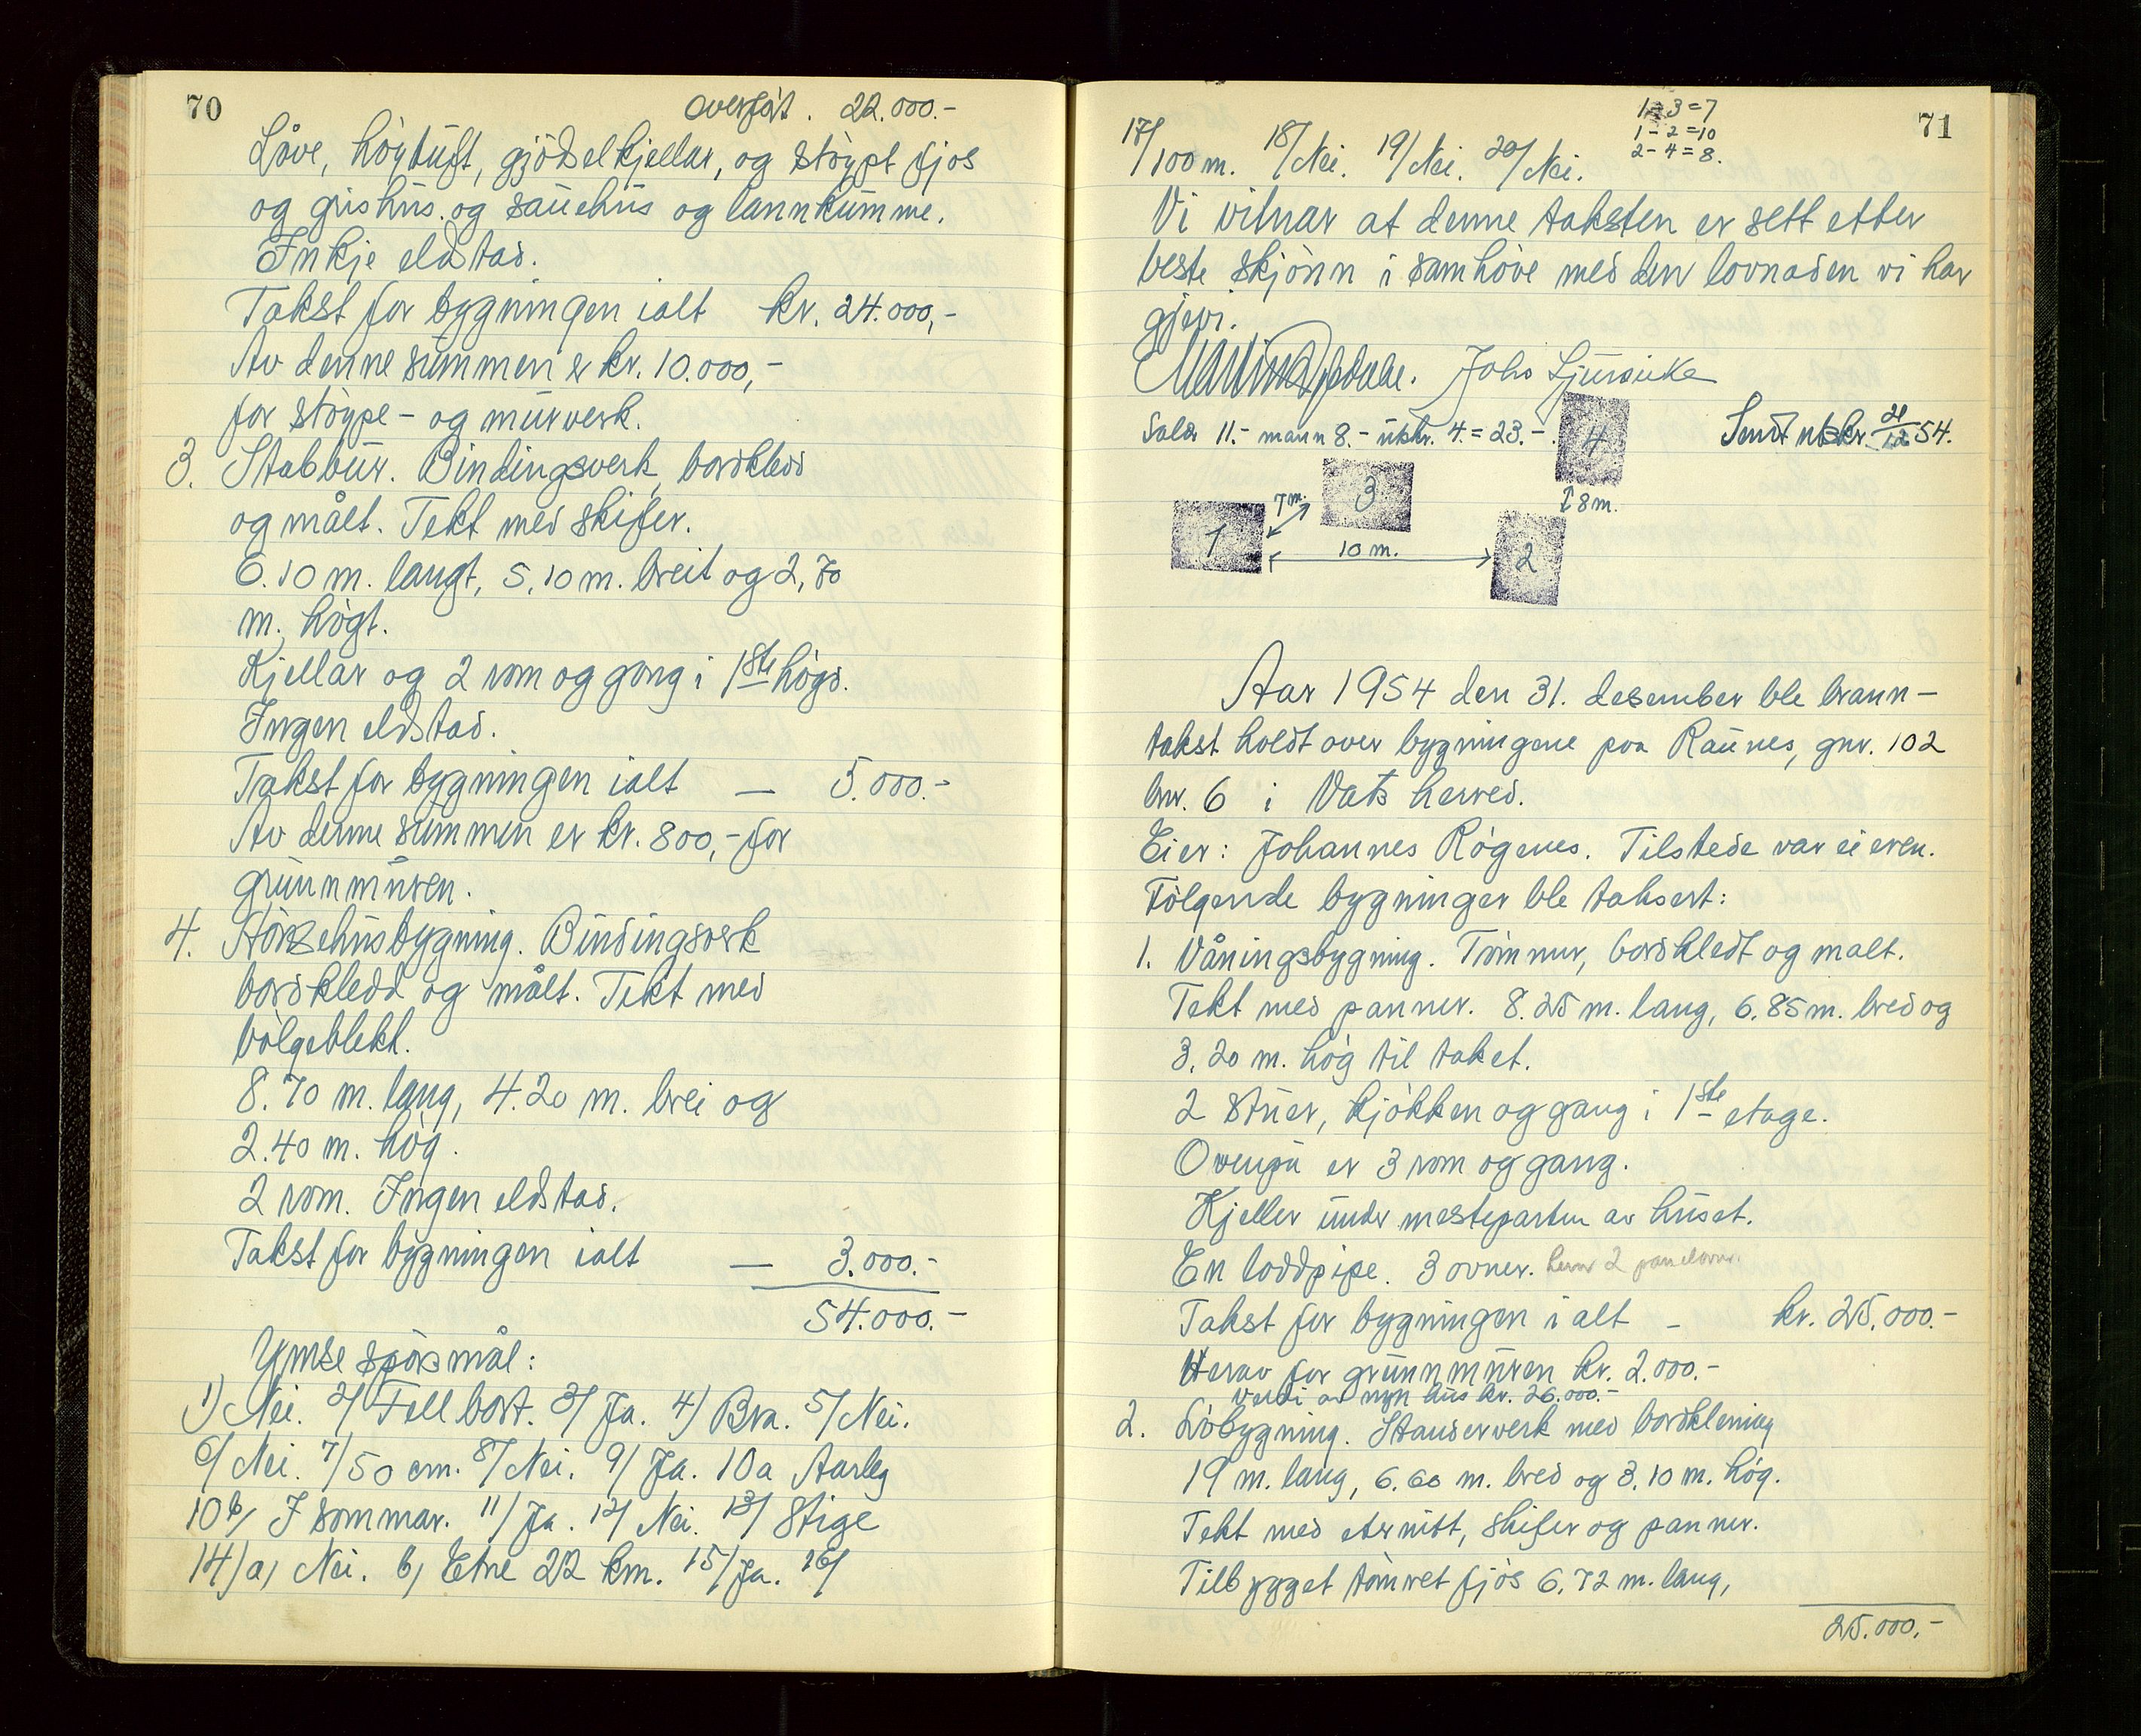 70
Overført. 22.000.-
Låve, höytuft, gjödselkjellar, og stöypt fjos
og grishus. og sauehus og lannkumme.
Inkje eldstad.
Takst for bygningen ialt kr. 24.000,-
Av denne summen er kr. 10.000,-
for stöype- og murverk.
3. Stabbur. Bindingsverk, bordkledd
og målt. Tekt med skifer.
6.10 m. langt, 5,10 m. breit og 2,70
m. högt.
Kjellar og 2 rom og gang i 1ste högd.
Ingen eldstad.
Takst for bygningen ialt — 5.000.-
Av denne summen er kr. 800,- for
grunnmuren.
4. Hönsehusbygning. Bindingsverk
bordkledd og målt. Tekt med
bölgeblekk.
8.70 m. lang, 4.20 m. brei og
2.40 m. hög.
2 rom. Ingen eldstad.
Takst for bygningen ialt — 3.000.-
54.000.-
Ymse spörsmål:
1) Nei. 2/ Fell bort. 3/ Ja. 4/ Bra. 5/ Nei.
6/ Nei. 7/ 50 cm. 8/ Nei. 9/ Ja. 10a Aarleg
10b/ I sommar. 11/ Ja. 12/ Nei. 13/ Stige
14/a, Nei. b, Etne 22 km. 15/ Ja. 16/
71
1-3=7
1-2=10
2-4=8.
17/ 100 m. 18/ Nei. 19/ Nei. 20/ Nei.
Vi vitnar at denne taksten er sett etter
beste skjönn i samhöve med den lovnaden vi har
gjevi.
Johs Ljursuka
Sala 11.- mann 8.- utskr. 4.=23.-.
Sendt utskr. 21/12 54.
4
3
7 m.
8 m.
1
10 m.
2
Aar 1954 den 31. desember ble brann-
takst holdt over bygningene paa Raunes, gnr. 102
bnr. 6 i Vats herred.
Eier: Johannes Rögenes. Tilstede var eieren.
Fölgende bygninger ble taksert:
1. Våningsbygning. Tömmer, bordkledt og malt.
Tekt med panner. 8.25 m. lang, 6.85 m. bred og
3.20 m. hög til taket.
2 stuer, kjökken og gang i 1ste etage.
Ovenpå er 3 rom og gang.
Kjeller under mesteparten av huset.
En loddpipe. 3 ovner. herav 2 panelovner.
Takst for bygningen i alt - kr. 25.000.-
Herav for grunnmuren kr. 2.000.-
Verdi av nyn hus kr. 26.000.-
2. Löbygning. Standerverk med bordkledning
19 m. lang, 6.60 m. bred og 3.10 m. hög.
Tekt med eternitt, skifer og panner.
Tilbygget tömret fjös 6.72 m. lang,
25.000.-